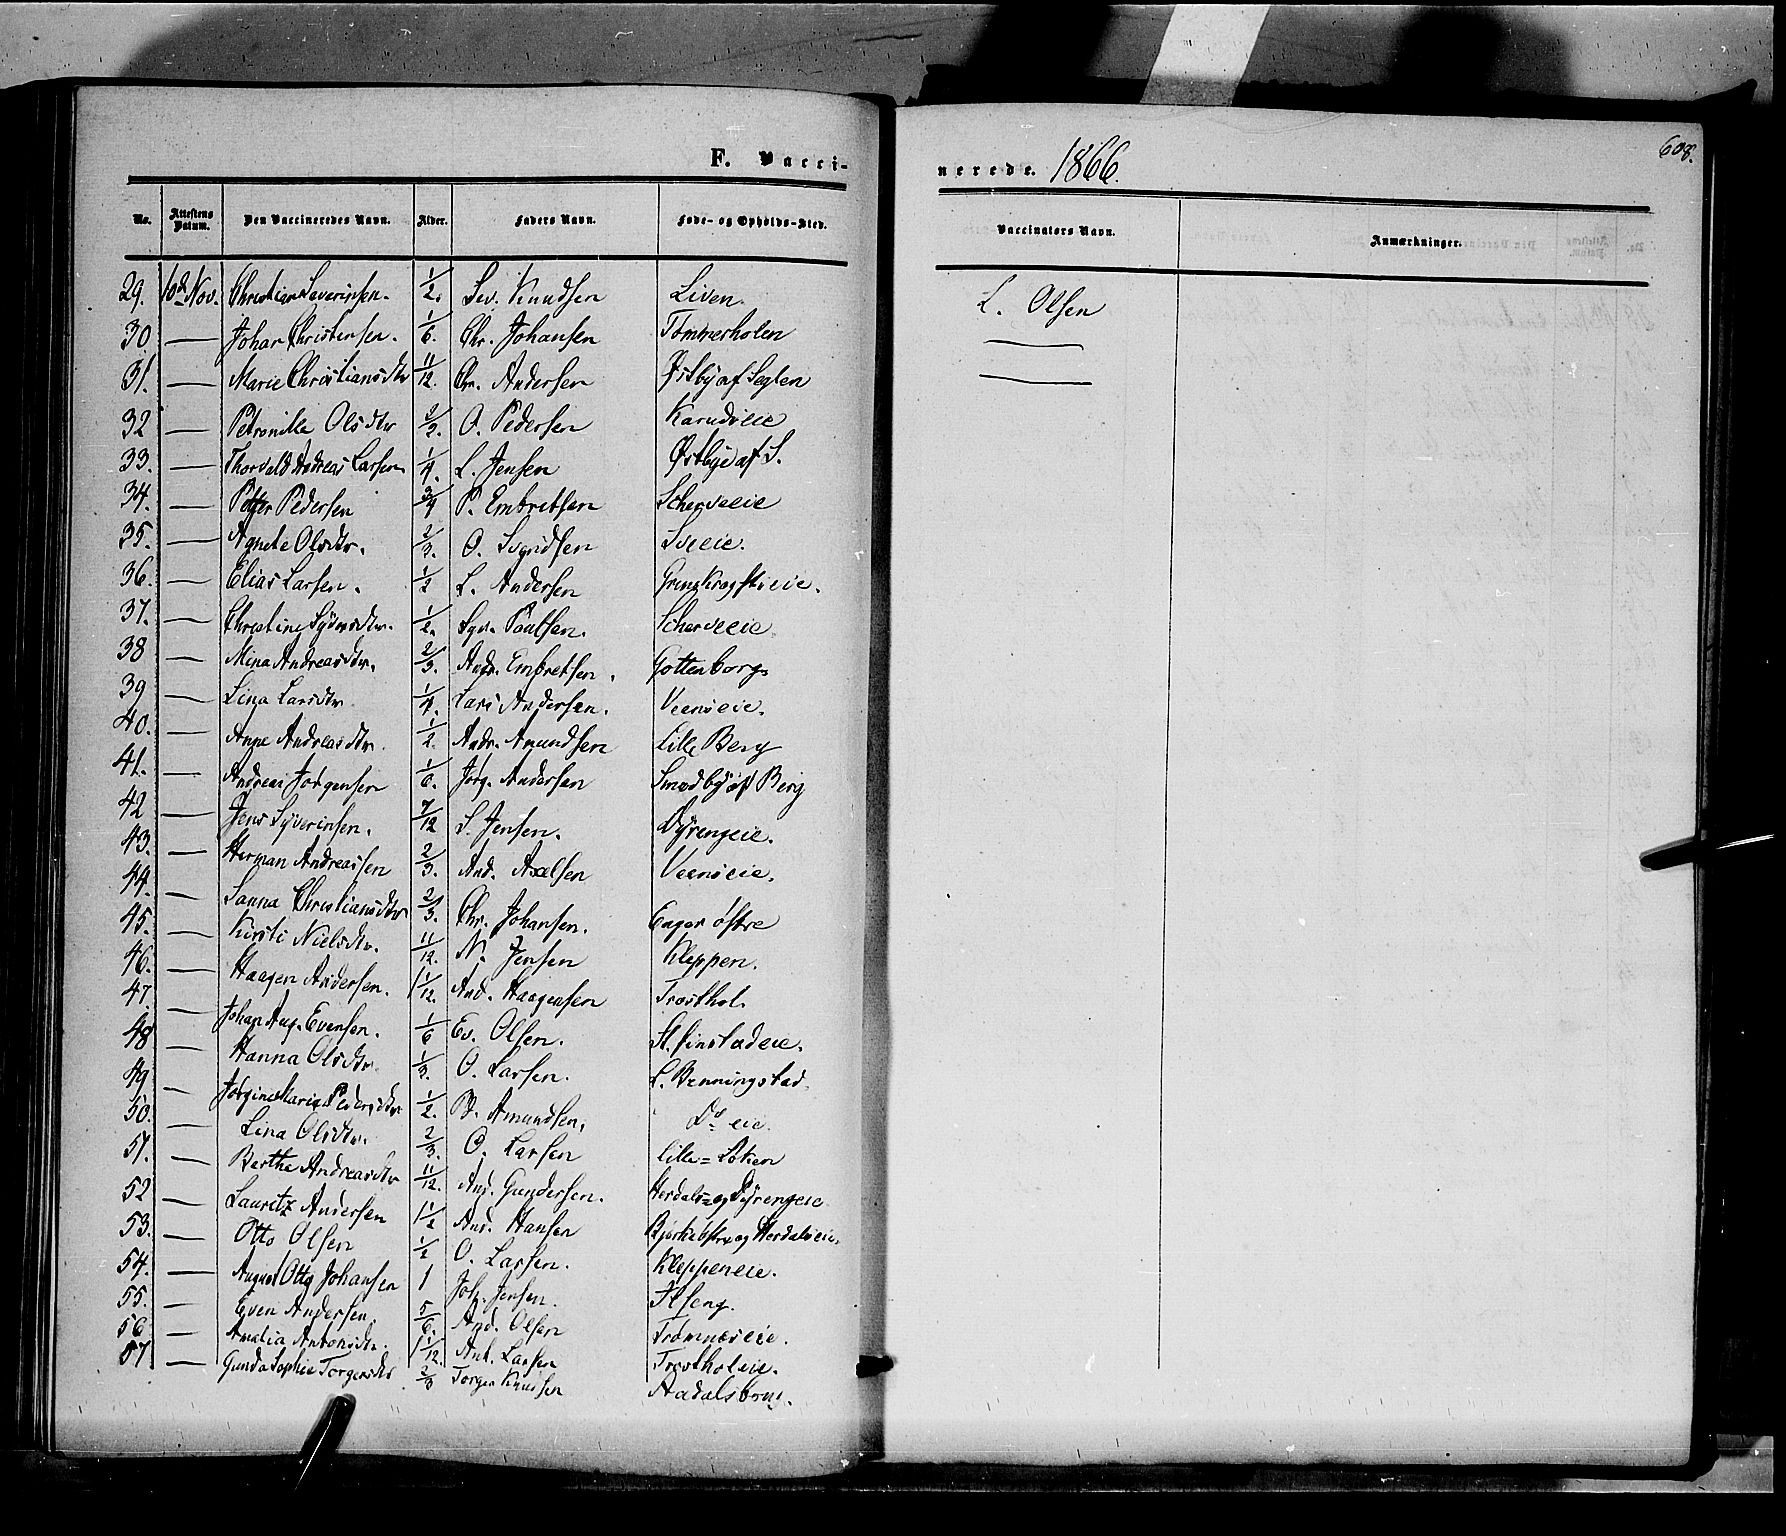 F. Vacci-
nerede. 1866.
608.
No. Attestens Datum. Den Vaccineredes Navn. Alder. Faders Navn. Føde- og Opholds-Sted. Vaccinators Navn. Anmærkninger.
29. 10d Nov. Christian Severinsen. 1/2. Sev. Knudsen Liven L. Olsen
30 — Johan Christensen. 1/6. Chr. Johansen Tømmerholen —
31. — Marie Christiansdtr 11/12. Chr. Andersen Østby af Seglen —
32 — Petronille Olsdtr O. Pedersen
33. — Thorvald Andreas Larsen 1/4. L. Jensen Østbye af S.
34. — Petter Pedersen 3/4 P. Embretsen Scherveeie
35. — Agnete Olsdtr. 2/3. O.
36. — Elias Larsen. 1/2 L. Andersen
37. — Christine 1/2. Syv. Paulsen. Scherveeie
38 — Mina Andreasdtr. 2/3. Andr. Embretsen. Gottenborg
39 — Lina Larsdtr 1/4. Lars Andersen. Veenseie.
40. — Anne Andreasdtr. 1/2. Andr. Amundsen Lille Berg
41. — Andreas Jørgensen 1/6. Jørg. Andersen Smedby af Berg
42 — Jens Syverinsen. 7/12 S. Jensen. Dyrengeie.
43. — Herman Andreassen 2/3. And. Axelsen Veenseie.
44. — Sanna Christiansdtr 2/3. Chr. Johansen. Enger østre
45. — Kirsti Nielsdtr. 11/12. N. Jensen Kleppen.
46. — Haagen Andersen. 1 1/12. And. Haagensen Trosthol.
47. — Johan Aug. Evensen. 1/6 Ev. Olsen. St. Finstadeie.
48 — Hanna Olsdtr. 1/3. O. Larsen. L. Benningstad.
49 — Jørgine Marie Pedersdtr 1/2. P. Amundsen. Do eie.
50. — Lina Olsdtr. 2/3. O. Larsen Lille=Løken
51. — Berthe Andreasdtr 11/12. And. Gundersen. Herdals= og Dyrengeie
52 — Lauritz Andersen 1 1/2 And. Hansen Bjørke østre og Herdalseie.
53. — Otto Olsen 1/2 O. Larsen. Kleppeneie.
54. — August Otto Johansen 1 Joh. Jensen. Ilseng.
55. — Even Andersen. 5/6. And. Olsen Trømneseie.
56 — Amalia Antonsdtr. 1 1/12. Ant. Larsen Trostholeie.
57 — Gunda Sophie Torgersdtr 2/3 Torger Knudsen Aadalsbrug.